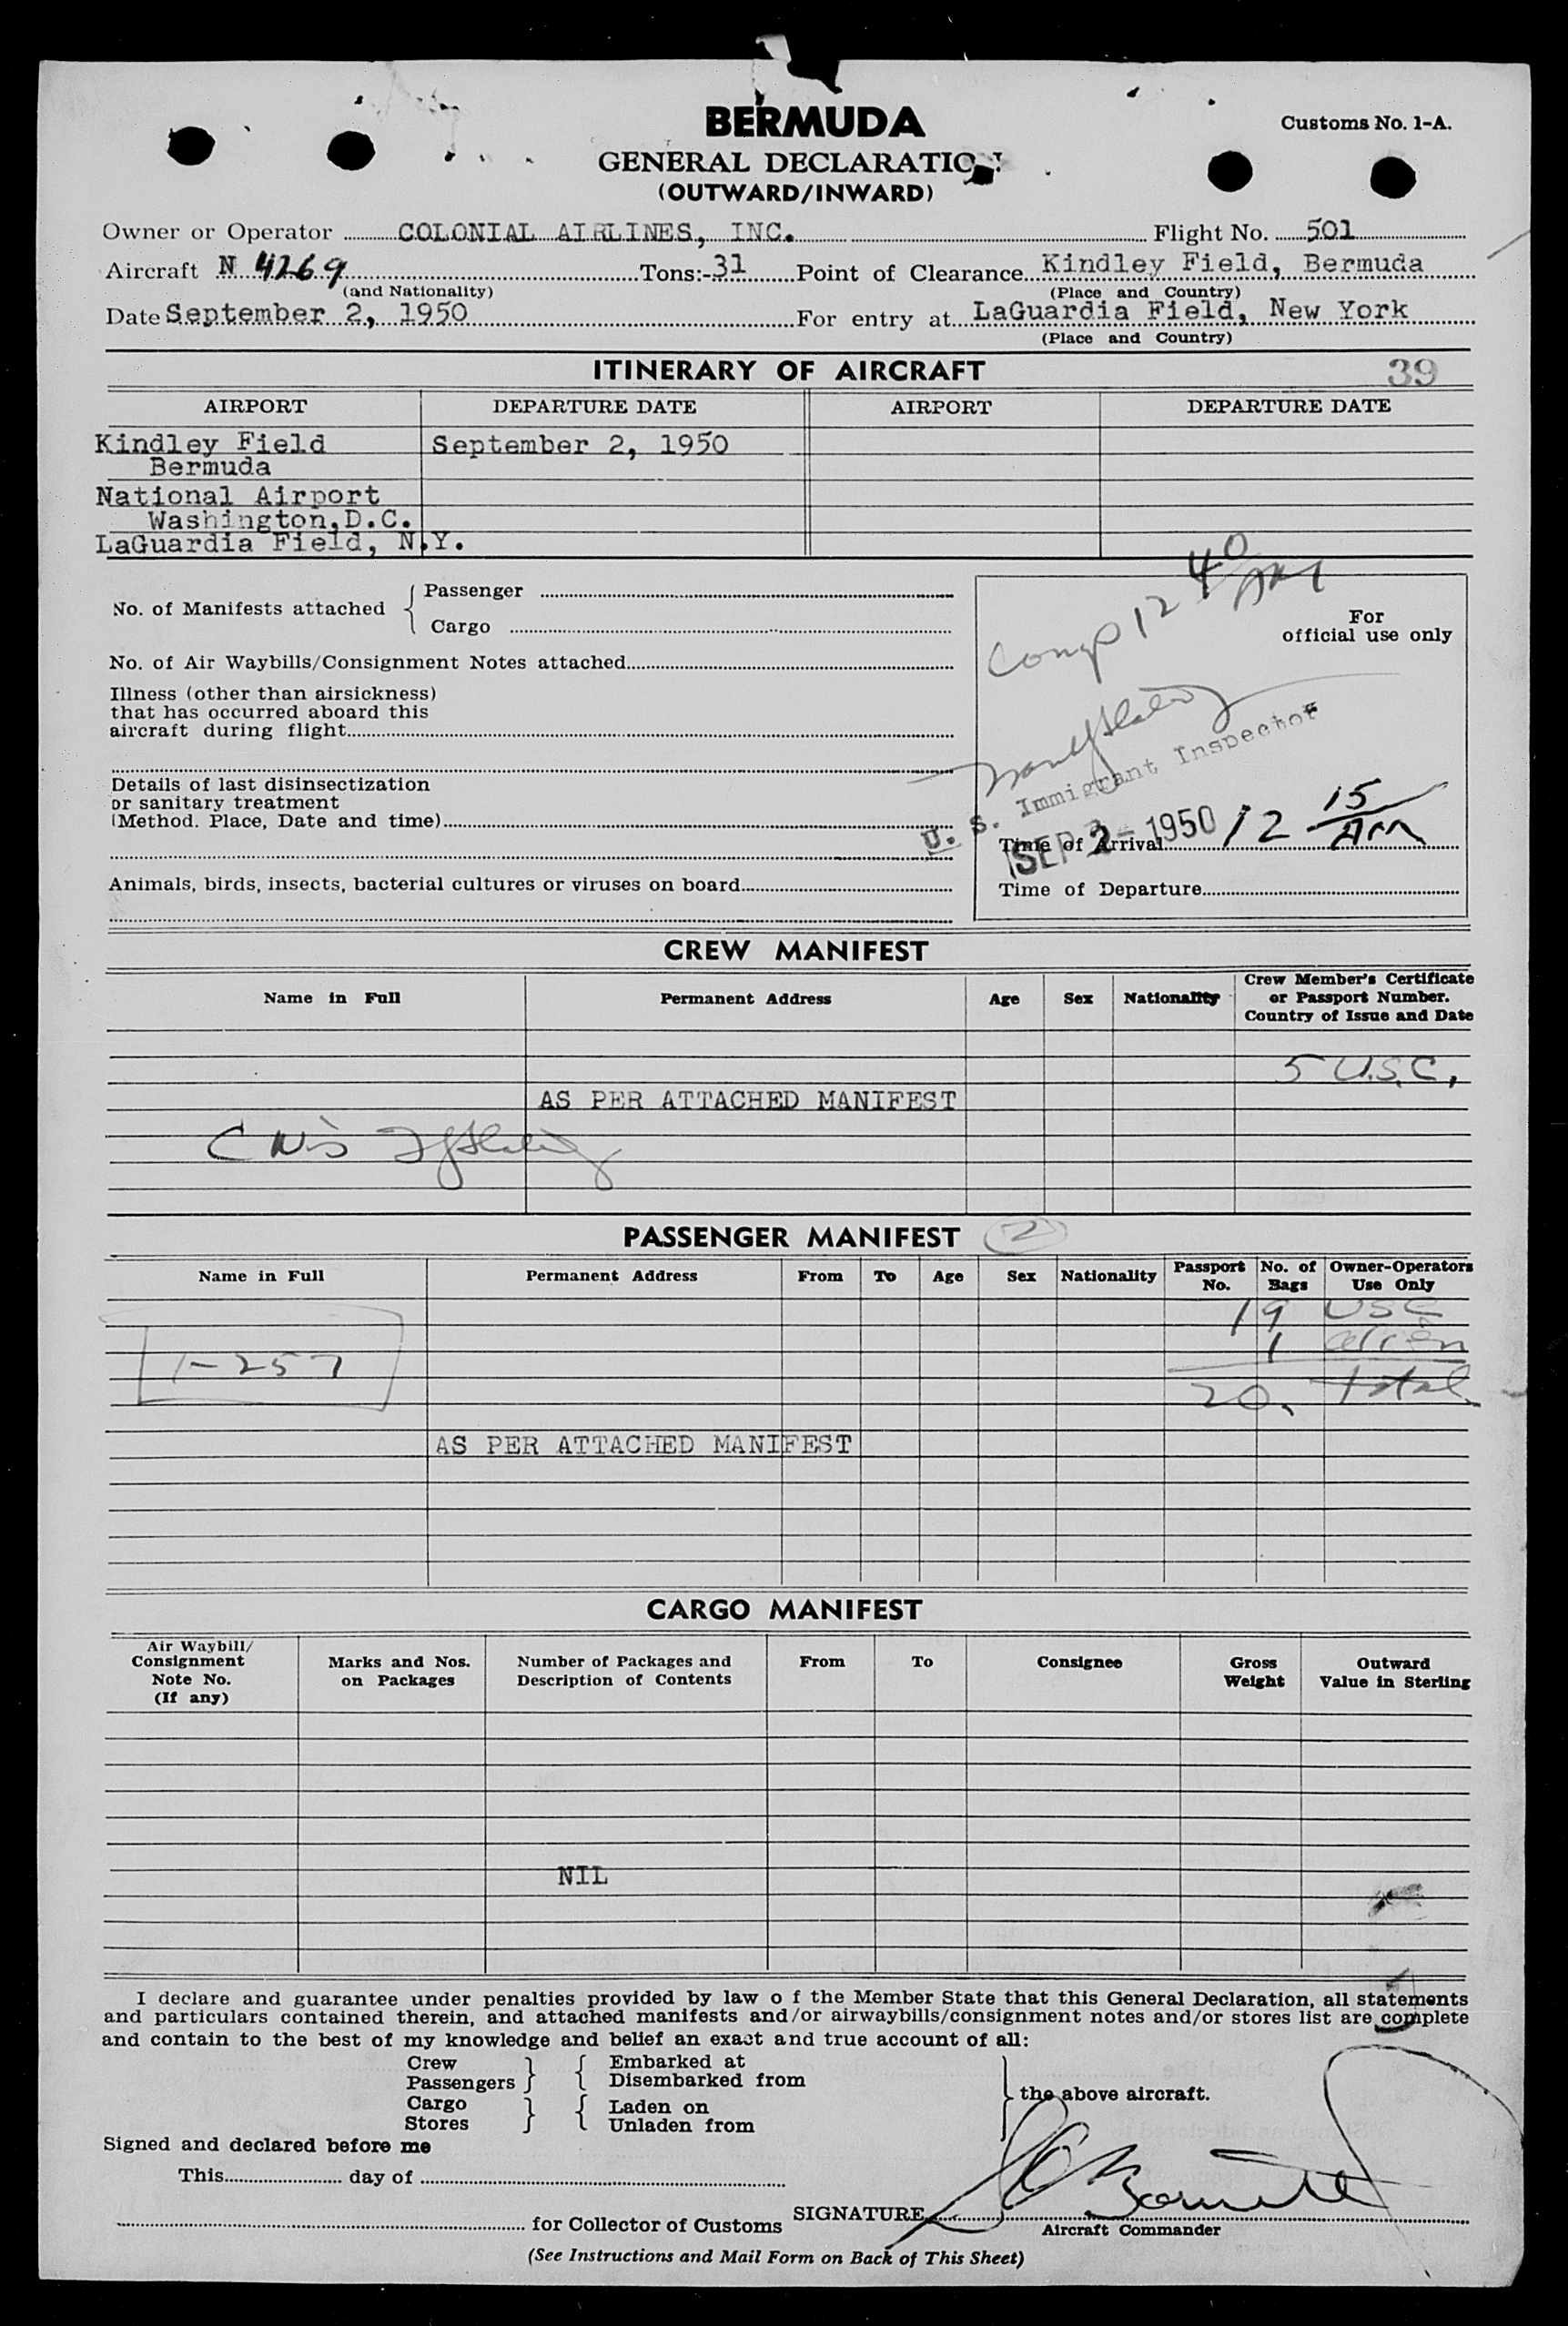 BERMUDA
Customs No. 1-A.
GENERAL DECLARATION
(OUTWARD/INWARD)
Owner or Operator COLONIAL AIRLINES, INC. Flight No. 501
Aircraft N 4269 Tons:- 31 Point of Clearance Kindley Field, Bermuda
(and Nationality) (Place and Country)
Date September 2, 1950 For entry at LaGuardia Field, New York
(Place and Country)
ITINERARY OF AIRCRAFT 39
AIRPORT DEPARTURE DATE AIRPORT DEPARTURE DATE
Kindley Field September 2, 1950
Bermuda
National Airport
Washington, D.C.
LaGuardia Field, N.Y.
No. of Manifests attached { Passenger
Cargo
Comp 12 40 AM
For
official use only
No. of Air Waybills/Consignment Notes attached
Illness (other than airsickness)
that has occurred aboard this
aircraft during flight
U. S. Immigrant Inspector
Details of last disinsectization
or sanitary treatment
(Method. Place, Date and time)
SEP 2 - 1950
Time of Arrival 12 15 AM
Animals, birds, insects, bacterial cultures or viruses on board
Time of Departure
CREW MANIFEST
Name in Full Permanent Address Age Sex Nationality Crew Member's Certificate
or Passport Number.
Country of Issue and Date
5 U.S.C.
AS PER ATTACHED MANIFEST
PASSENGER MANIFEST (2)
Name in Full Permanent Address From To Age Sex Nationality Passport No. No. of Bags Owner-Operators Use Only
19 USC
1 alien
1-257
20. total
AS PER ATTACHED MANIFEST
CARGO MANIFEST
Air Waybill/
Consignment
Note No.
(If any)
Marks and Nos.
on Packages
Number of Packages and
Description of Contents
From To Consignee
Gross
Weight
Outward
Value in Sterling
NIL
I declare and guarantee under penalties provided by law o f the Member State that this General Declaration, all statements
and particulars contained therein, and attached manifests and/or airwaybills/consignment notes and/or stores list are complete
and contain to the best of my knowledge and belief an exact and true account of all:
Crew } { Embarked at
Passengers } { Disembarked from
Cargo } { Laden on
Stores } { Unladen from
} the above aircraft.
Signed and declared before me
This day of
for Collector of Customs SIGNATURE
Aircraft Commander
(See Instructions and Mail Form on Back of This Sheet)